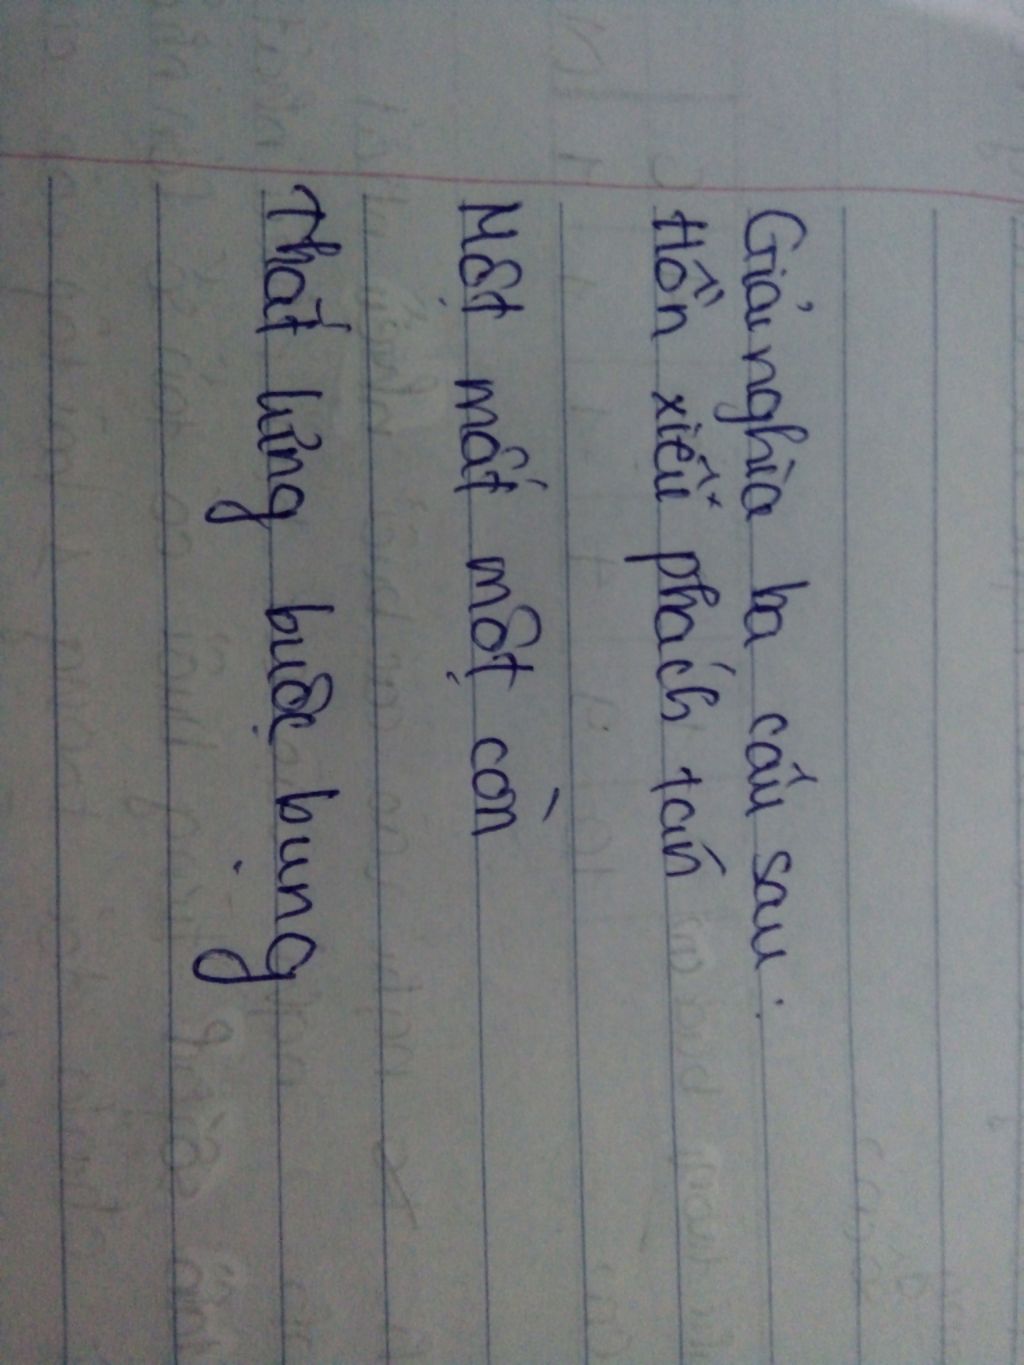 Giải nghĩa ba câu sau.
Hồn xiểu phách tán
Một mất một còn
Thắt lưng buộc bụng